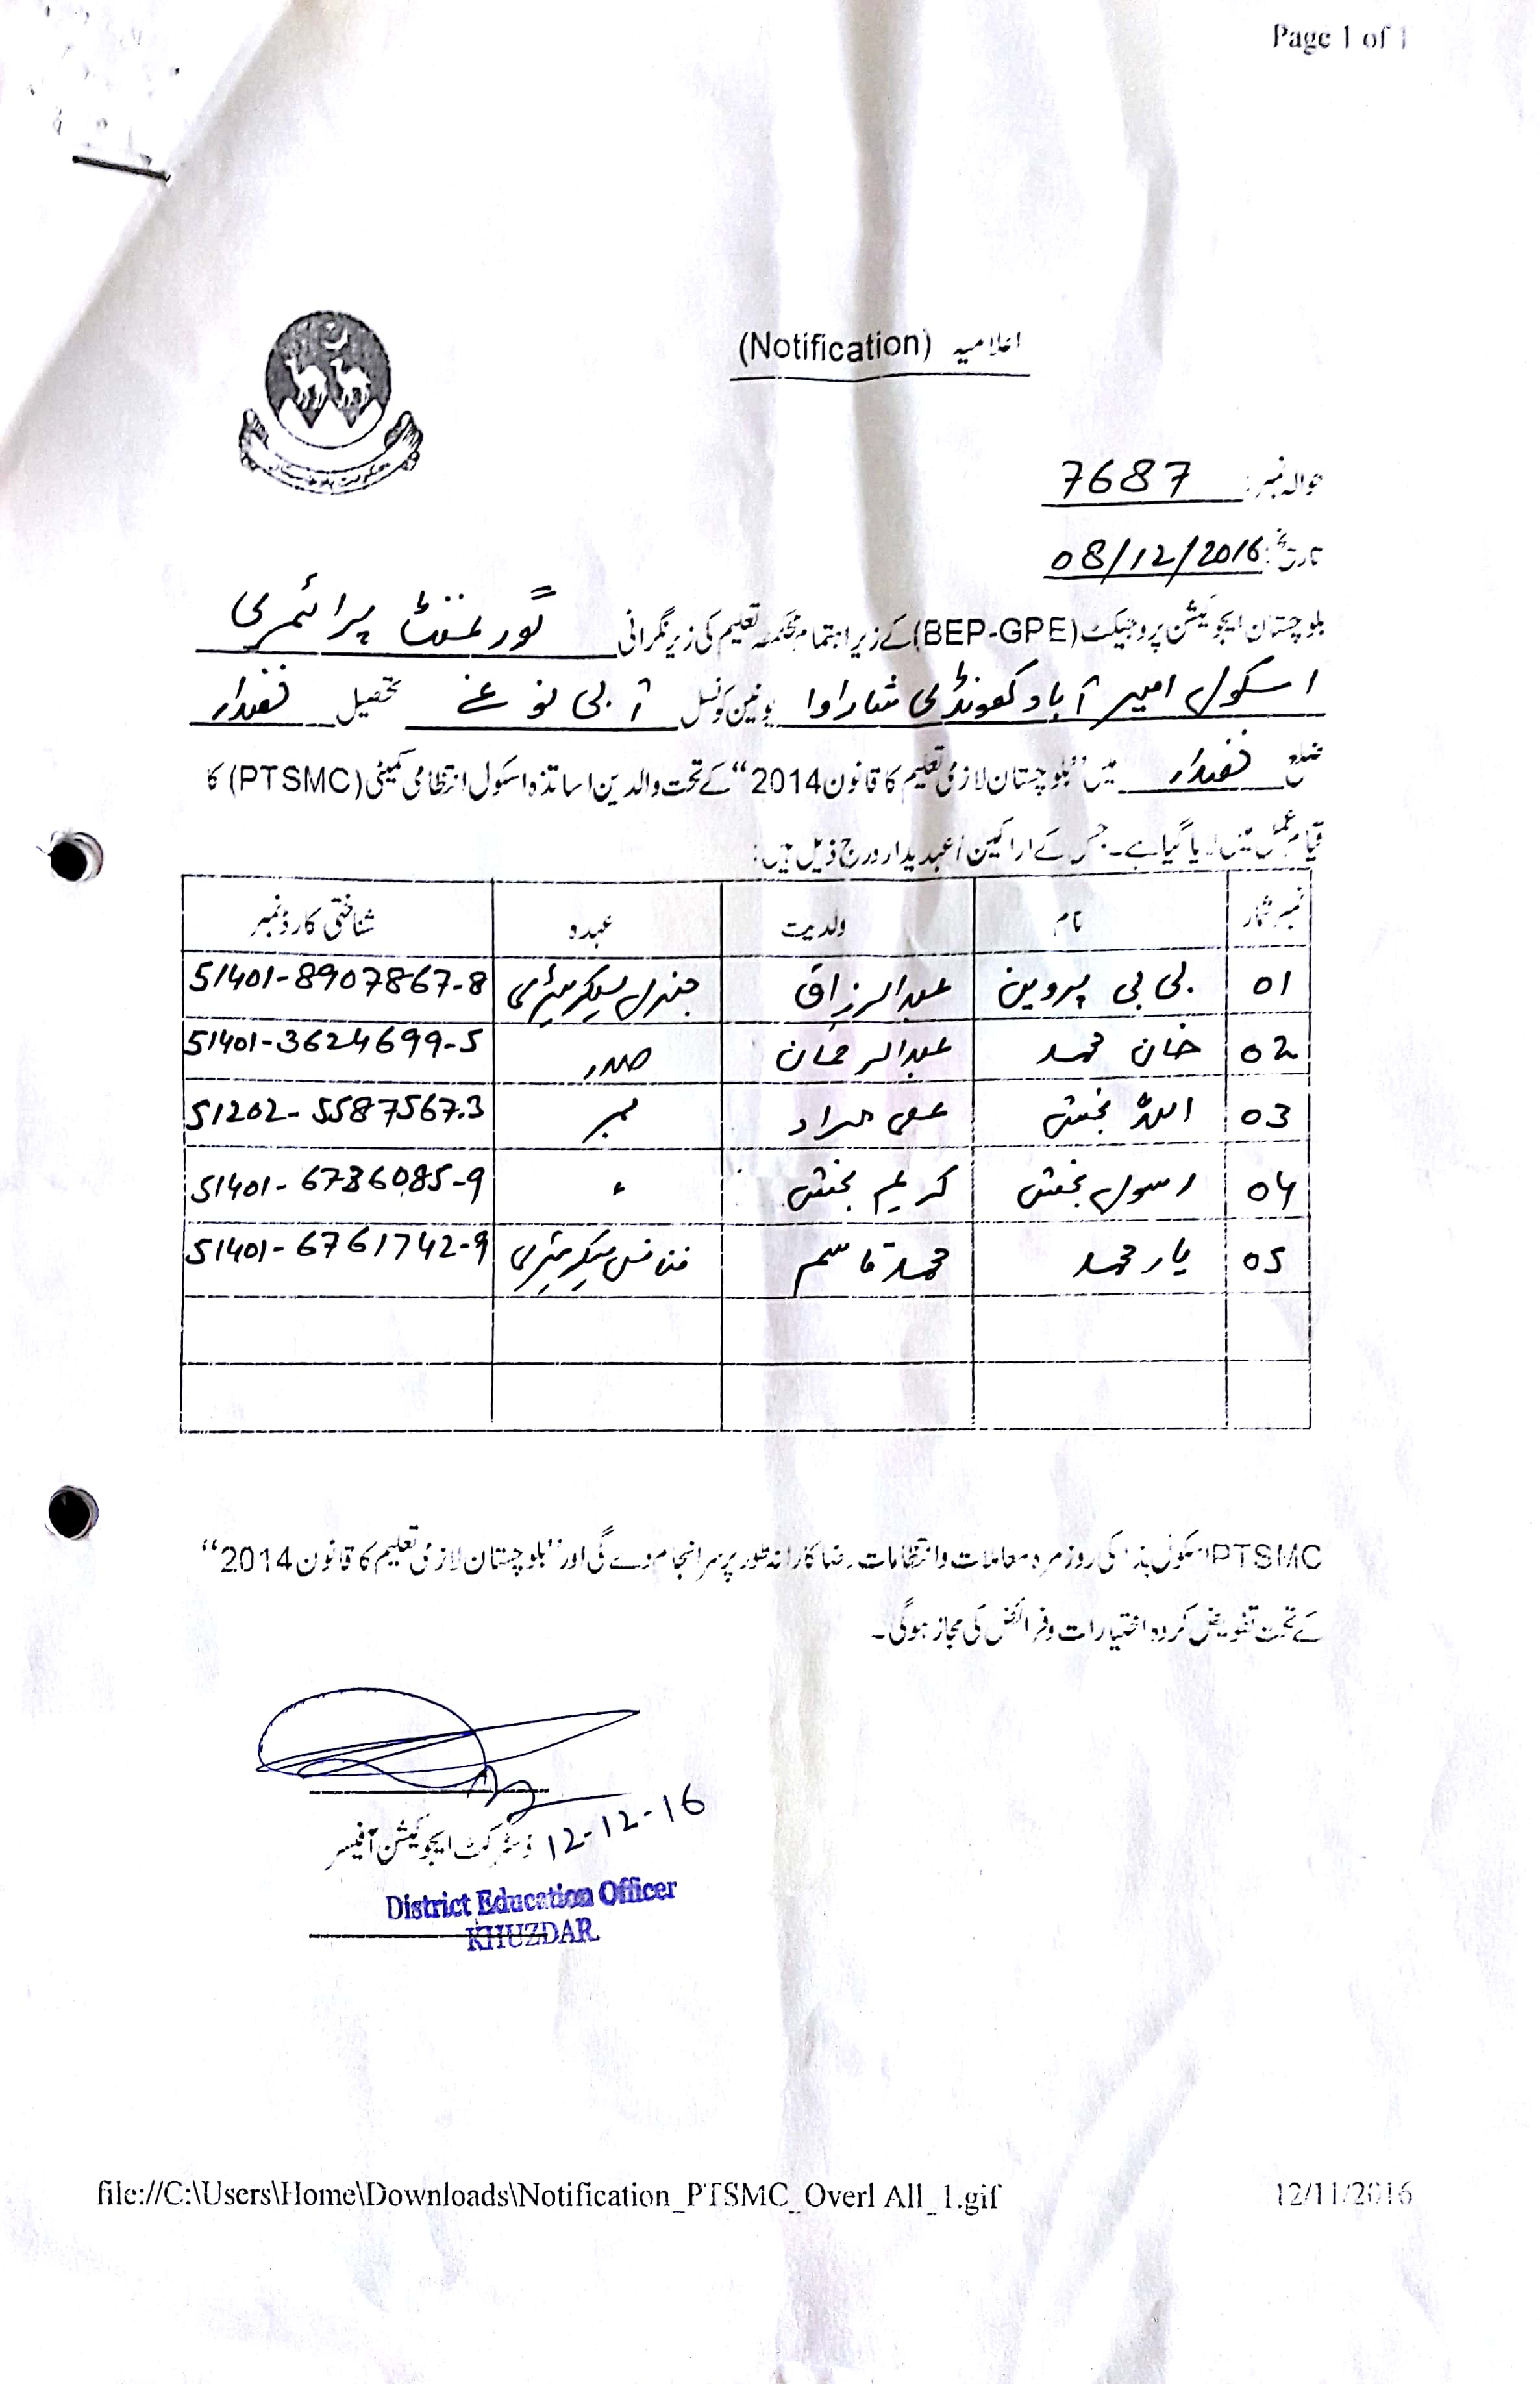 Page 1 of 1
اعلامیہ (Notification)
حوالہ نمبر: 7687
تاریخ: 08/12/2016
بلوچستان ایجوکیشن پروجیکٹ (BEP-GPE) کے زیر اہتمام محکمہ تعلیم کی زیر نگرانی گورنمنٹ پرائمری
اسکول امیر آباد کھونڈی شاراوا یونین کونسل آ بی نوغے تحصیل خضدار
ضلع خضدار میں "بلوچستان لازمی تعلیم کا قانون 2014" کے تحت والدین اساتذہ اسکول انتظامی کمیٹی (PTSMC) کا
قیام عمل میں لایا گیا ہے۔ جس کے اراکین / عہدیدار درج ذیل ہیں:
نمبر شمار نام ولدیت عہدہ شناختی کارڈ نمبر
01 بی بی پروین عبدالرزاق جنرل سیکریٹری 51401-8907867-8
02 خان محمد عبدالرحمان صدر 51401-3624699-5
03 اللہ بخش مراد ممبر 51202-5587567.3
04 رسول بخش کریم بخش 〃 51401-6736085-9
05 یار محمد محمد قاسم فنانس سیکریٹری 51401-6761742-9
PTSMC اسکول ہذا کی روزمرہ معاملات و انتظامات رضاکارانہ طور پر سرانجام دے گی اور "بلوچستان لازمی تعلیم کا قانون 2014"
کے تحت تفویض کردہ اختیارات و فرائض کی مجاز ہوگی۔
12-12-16
ڈسٹرکٹ ایجوکیشن آفیسر
District Education Officer
KHUZDAR
file://C:\Users\Home\Downloads\Notification_PTSMC_Overl All_1.gif 12/11/2016